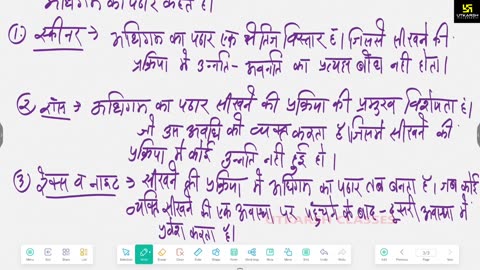 अधिगम का पठार कहते हैं।
UTKARSH
① स्कीनर → अधिगम का पठार एक क्षैतिज विस्तार है। जिससे सीखने की
प्रक्रिया में उन्नति-अवनति का प्रत्यक्ष बोध नहीं होता।
② रॉस → अधिगम का पठार सीखने की प्रक्रिया की प्रमुख विशेषता है।
जो उस अवधि को व्यक्त करता है। जिसमें सीखने की
प्रक्रिया में कोई उन्नति नहीं हुई हो।
③ रैक्स व नाइट → सीखने की प्रक्रिया में अधिगम का पठार तब बनता है। जब कोई
व्यक्ति सीखने की एक अवस्था पर पहुँचने के बाद - दूसरी अवस्था में
प्रवेश करता है।
UTKARSH CLASSES